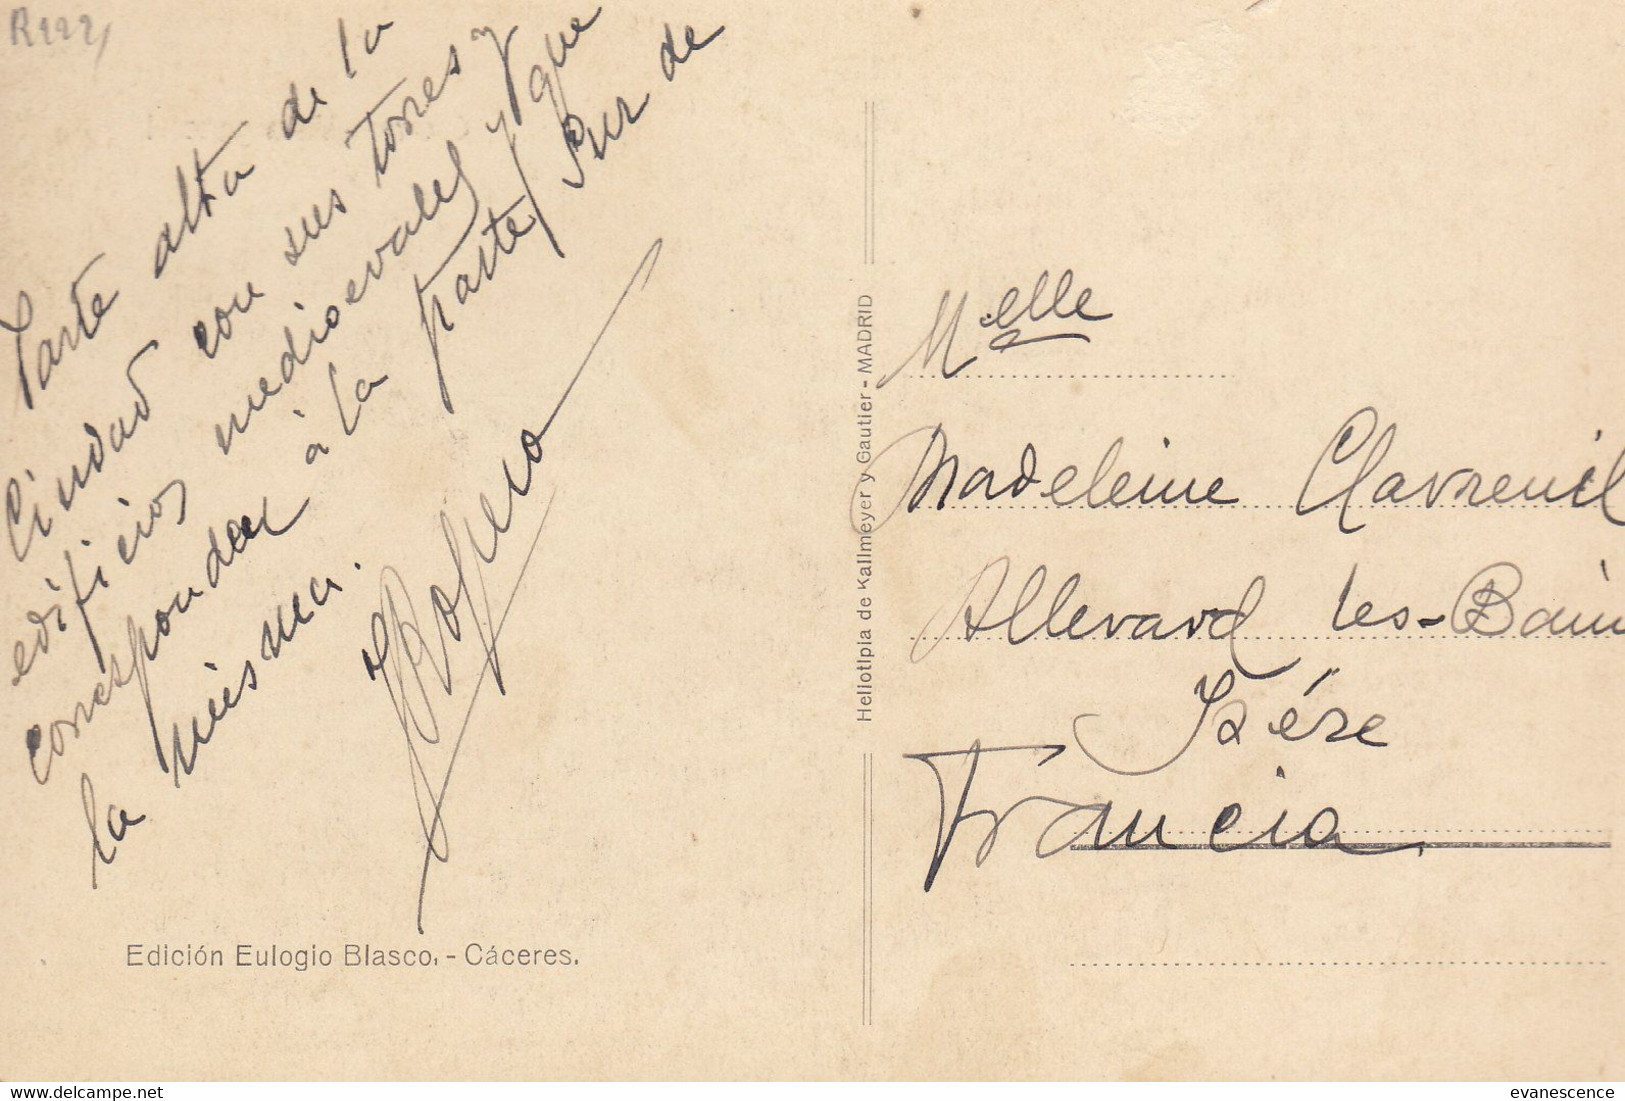 Parte alta de la
Ciudad con sus torres y
edificios medioevales y que
corresponden à la parte Sur de
la misma.
Edición Eulogio Blasco. - Cáceres.
Heliotipia de Kallmeyer y Gautier - MADRID
Melle
Madeleine Clavreuil
Allevard les-Bain
Isére
Francia
www.delcampe.net
evanescence